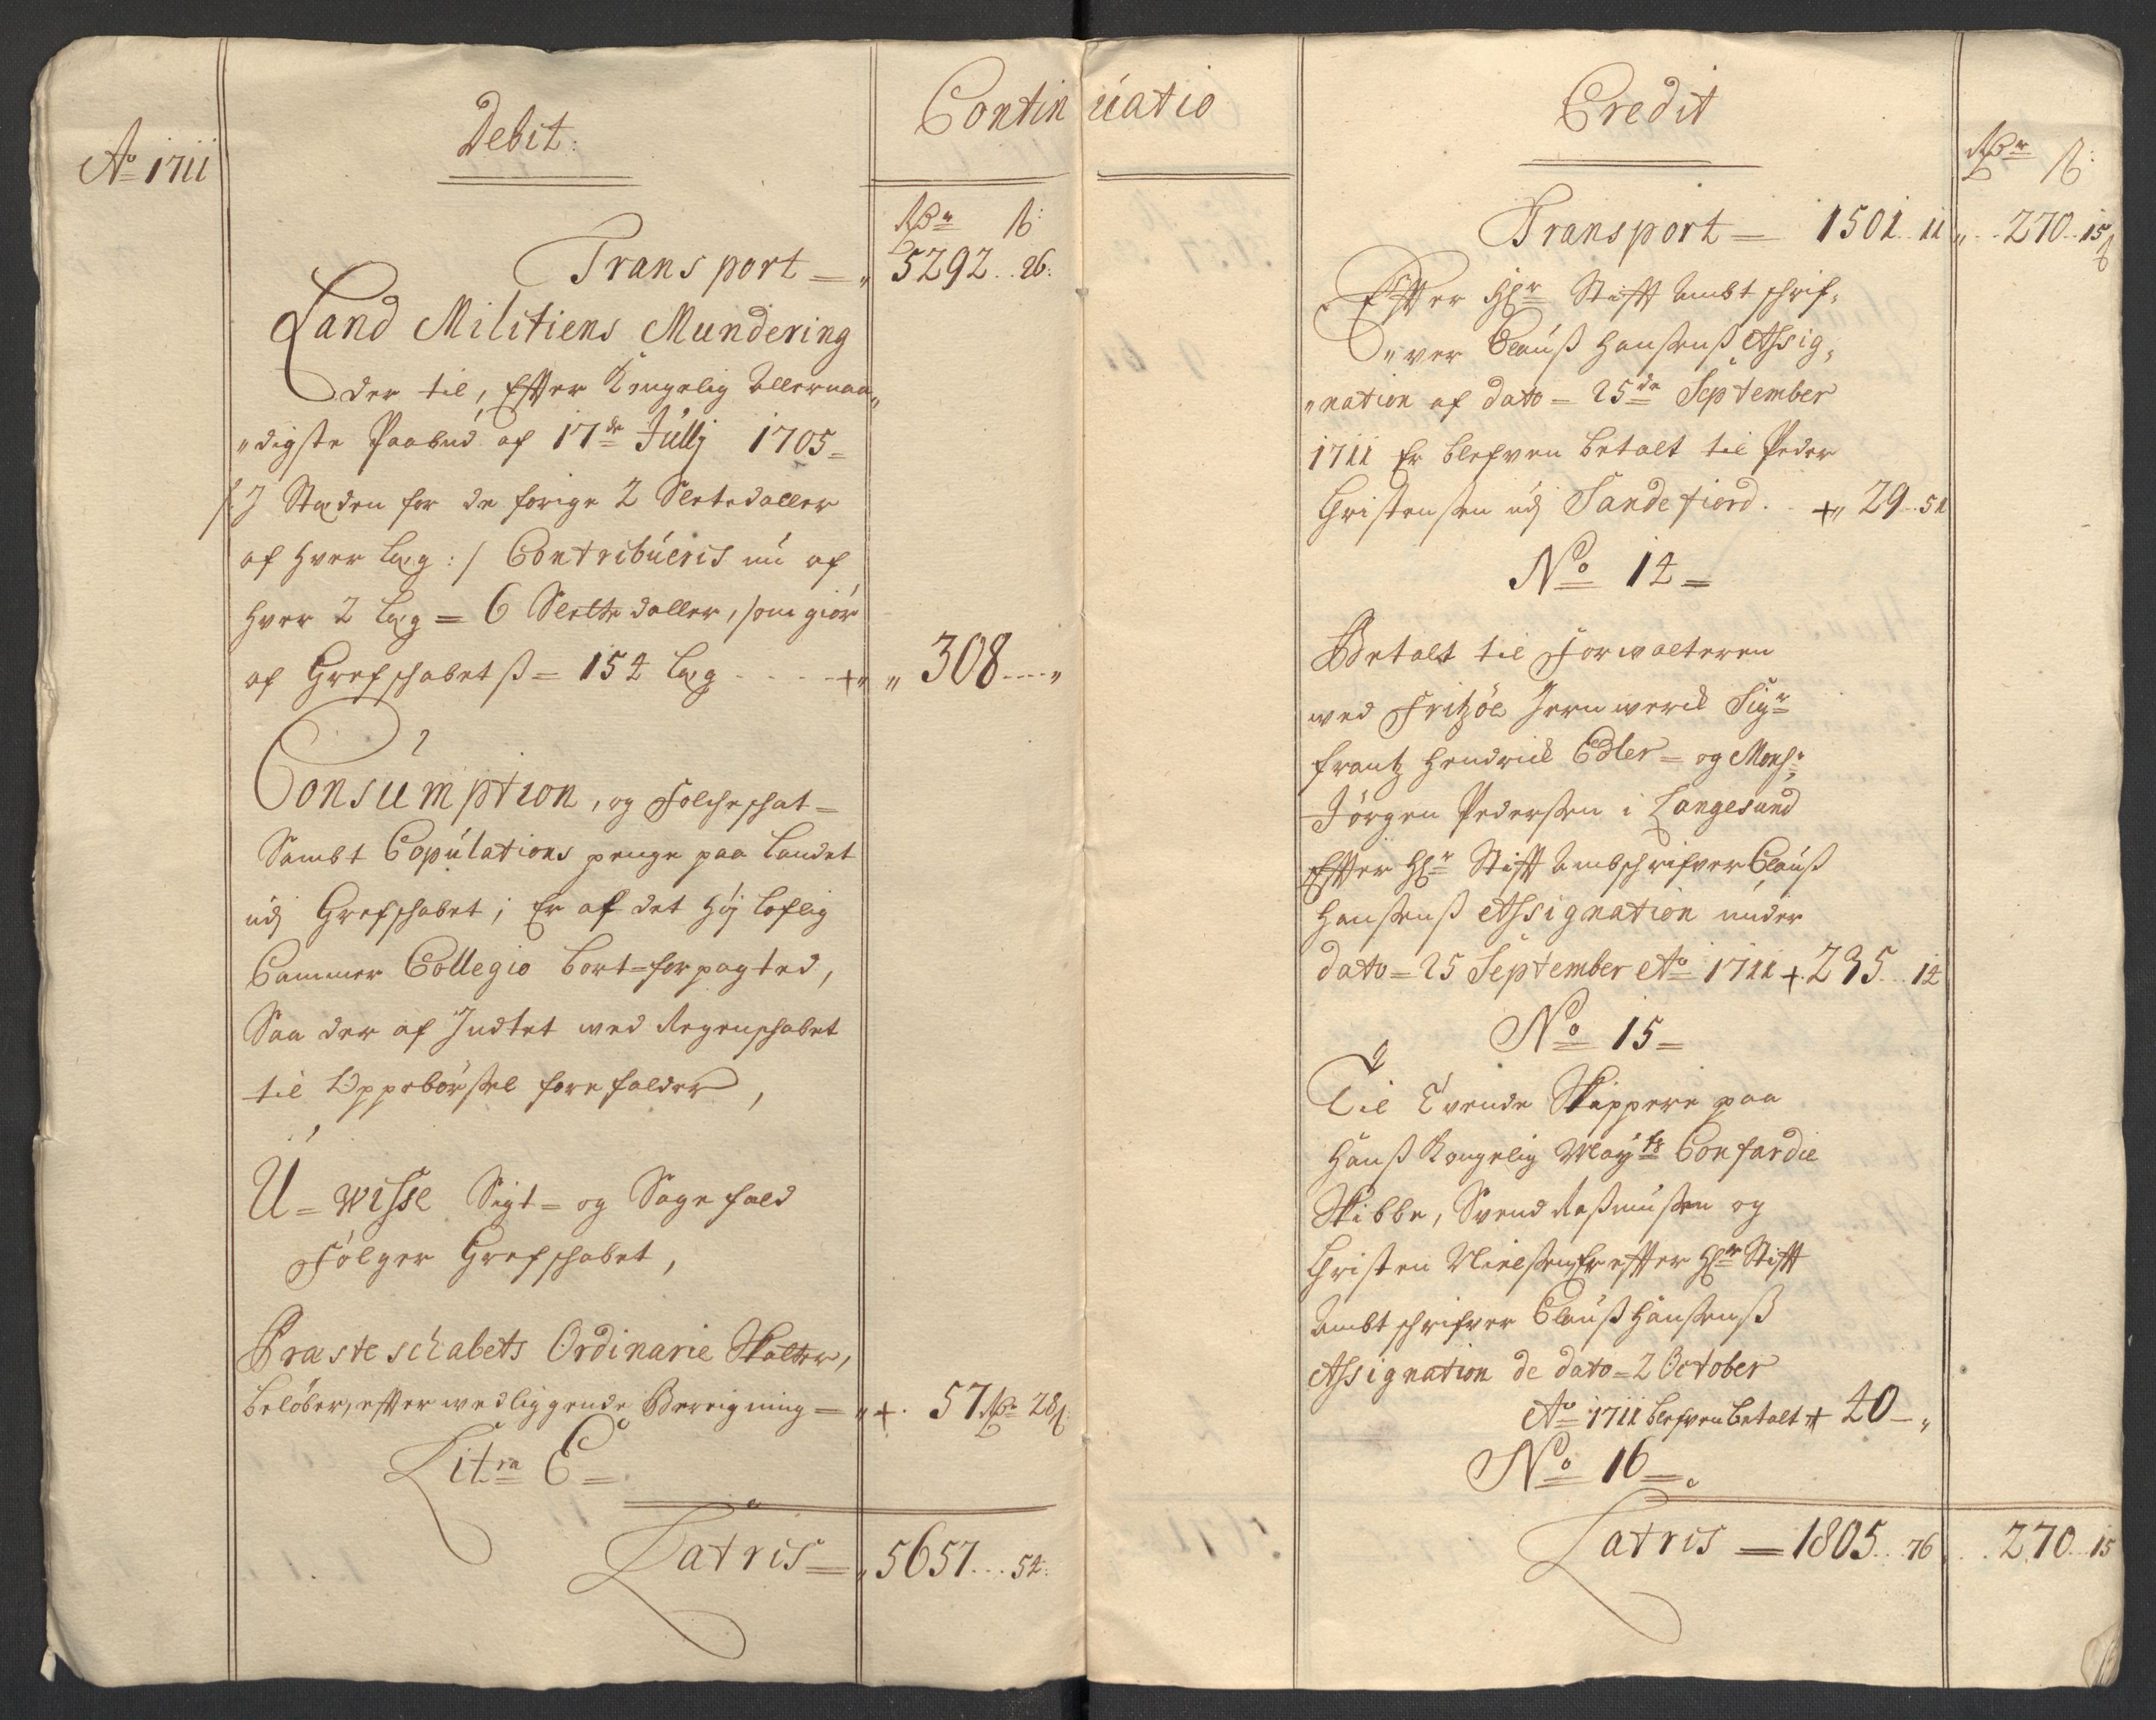 Ao 1711
Debit:
Continuatio
Rdr ß:
Transport = 5292..26:
Land Militiens Mundering
der til, Effter Kongelig Allernaa„
„digste Paabud af 17de Julij 1705=
/: J Stæden for de forige 2 Slettedaller
af Hver læg :/ Contribueris nu af
Hver 2 læg = 6 Slette daller, som giør
af Grefschabetß = 154 læg - - - - + „ 308 - - - „
Consumption, og Folcheschat=
Sambt Copulations penge paa Landet
udj Grefschabet; Er af det Høj loflig
Cammer Collegio bort=forpagted,
Saa der af Indtet med Regenschabet
til Oppebørsel forefalder,
U=wisse Sigt= og Sagefald
Følger Grefschabet,
Præsteschabets Ordinarie Skatter,
beløber, effter wedliggende Beregning = „ + . 57 Rdr 28ß:
Litra C=
Latris = „ 5657...54:
Credit
Rdr ß:
Transport = 1501..11 „ .. 270..15ß
Effter Hr Stifft Ambtschrif„
„ver Clauß Hanßenß Assig„
„nation af dato = 25de September
1711 Er blefven betalt til Peder
Christensen udj Sandefiord. . +„ 29..51
No 14=
Betalt til Forwalteren
wed Fritzöe Jernwerck Sigr
Frantz Hendrick Edler= og Monsr
Jørgen Pedersen i Langesund
Effter Hr Stifft Ambschrifver Clauß
Hanßenß Assignation under
dato = 25 September Ao 1711 + 235...14
No 15=
Til Tvende Skippere paa
Hanß Kongelig Mayts Confardie
Skibbe, Svend Rasmussen og
Christen Nielsen Er effter Hr Stifft
Ambtschrifver Clauß Hanßenß
Assignation de dato = 2 October
Ao 1711 blefven betalt + 40 — „
No 16=
Latris = 1805..76 ... 270..15